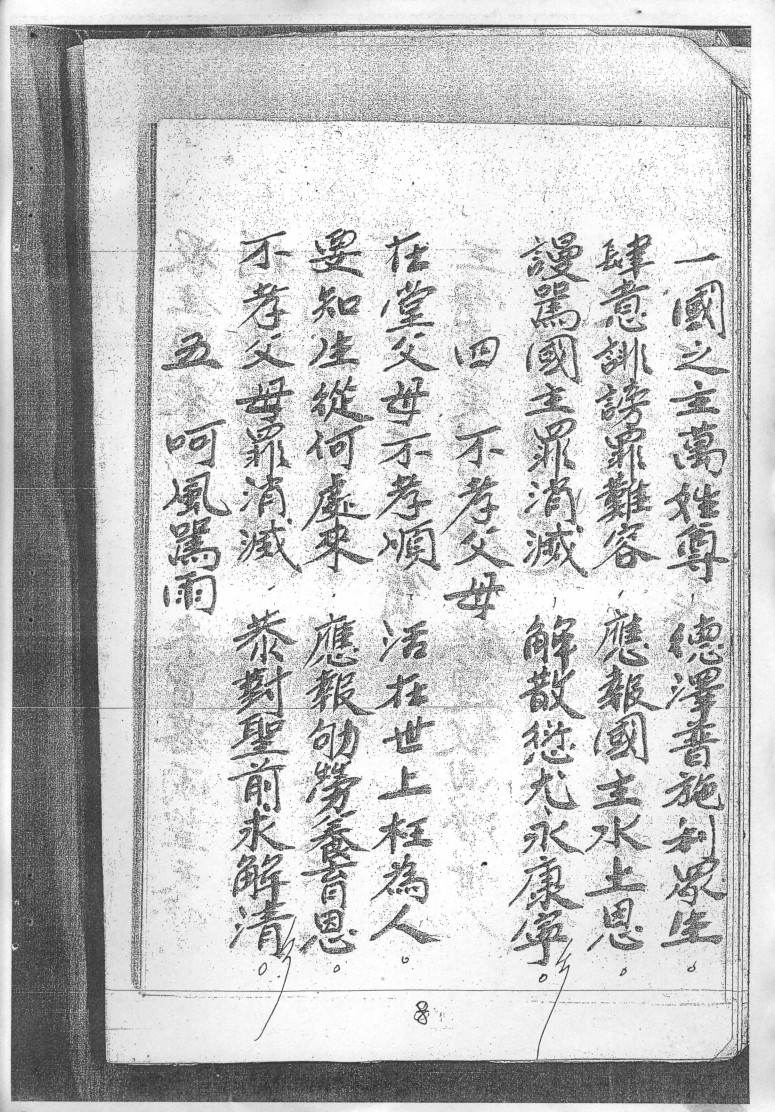 一國之主萬姓尊　德澤普施利眾生。
肆意誹謗罪難容　應報國主水土恩。
謾罵國主罪消滅　解散愆尤永康寧。
四　不孝父母
在堂父母不孝順　活在世上枉為人。
要知生從何處來　應報劬勞養育恩。
不孝父母罪消滅　恭對聖前求解清。
五　呵風罵雨
8